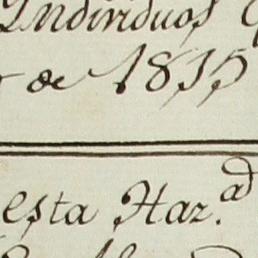 Individuos
de 1815
esta Haz.ad